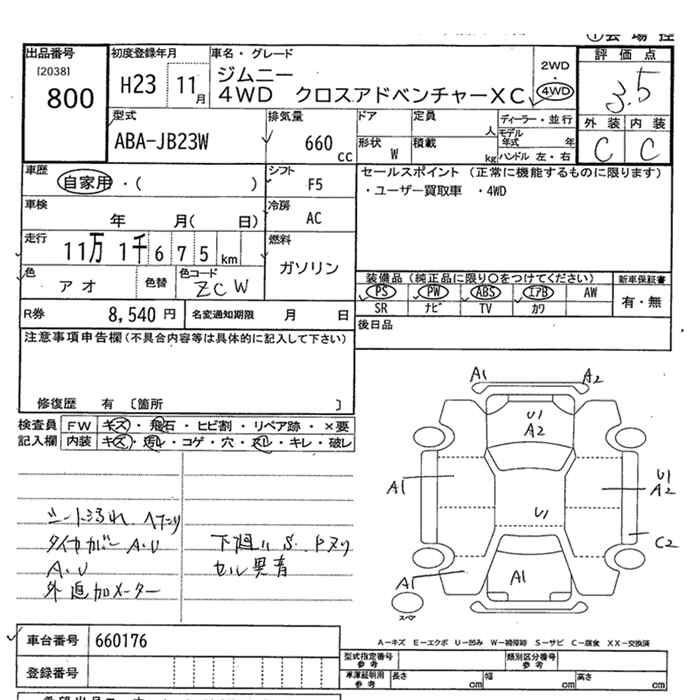 出品番号
[2038]
800
初度登録年月
H23 11月
車名・グレード
ジムニー
4WD クロスアドベンチャーXC
2WD
・
4WD
評価点
3.5
外装 内装
C C
型式
ABA-JB23W
排気量
660 CC
ドア
定員
人
形状
W
積載
kg
ディーラー・並行
モデル年式 年
ハンドル 左・右
車歴
自家用・( )
シフト
F5
セールスポイント (正常に機能するものに限ります)
・ユーザー買取車 ・4WD
車検
年 月( 日)
冷房
AC
走行
11万 1千 6 7 5 km
燃料
ガソリン
色
アオ
色替
色コード
ZCW
装備品(純正品に限り○をつけてください)
PS PW ABS エアB AW
SR ナビ TV カワ
新車保証書
有・無
R券
8,540円
名変通知期限 月 日
後日品
注意事項申告欄(不具合内容等は具体的に記入して下さい)
修復歴 有 〔箇所 〕
検査員 FW キズ・飛石・ヒビ割・リペア跡・×要
記入欄 内装 キズ・汚レ・コゲ・穴・スレ・キレ・破レ
シートよごれ
A.U
A.U
外追加メーター
下廻り S.
セル異音
A1
A2
U1
A2
A1
U1
U1
A2
C2
A1
A1
スペア
A－キズ E－エクボ U－凹み W－補修跡 S－サビ C－腐食 XX－交換済
車台番号
660176
登録番号
型式指定番号
参考
類別区分番号
参考
車庫証明用
参考
長さ cm
幅 cm
高さ cm